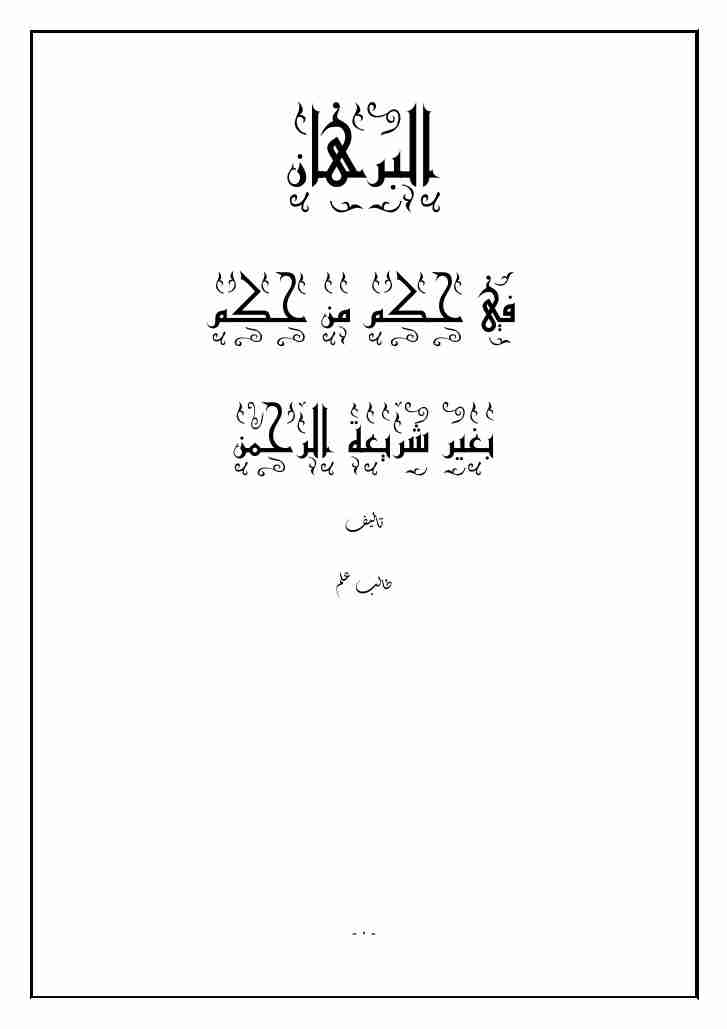 البرهان
في حكم من حكم
بغير شريعة الرحمن
تاليف
طالب علم
- ٠ -